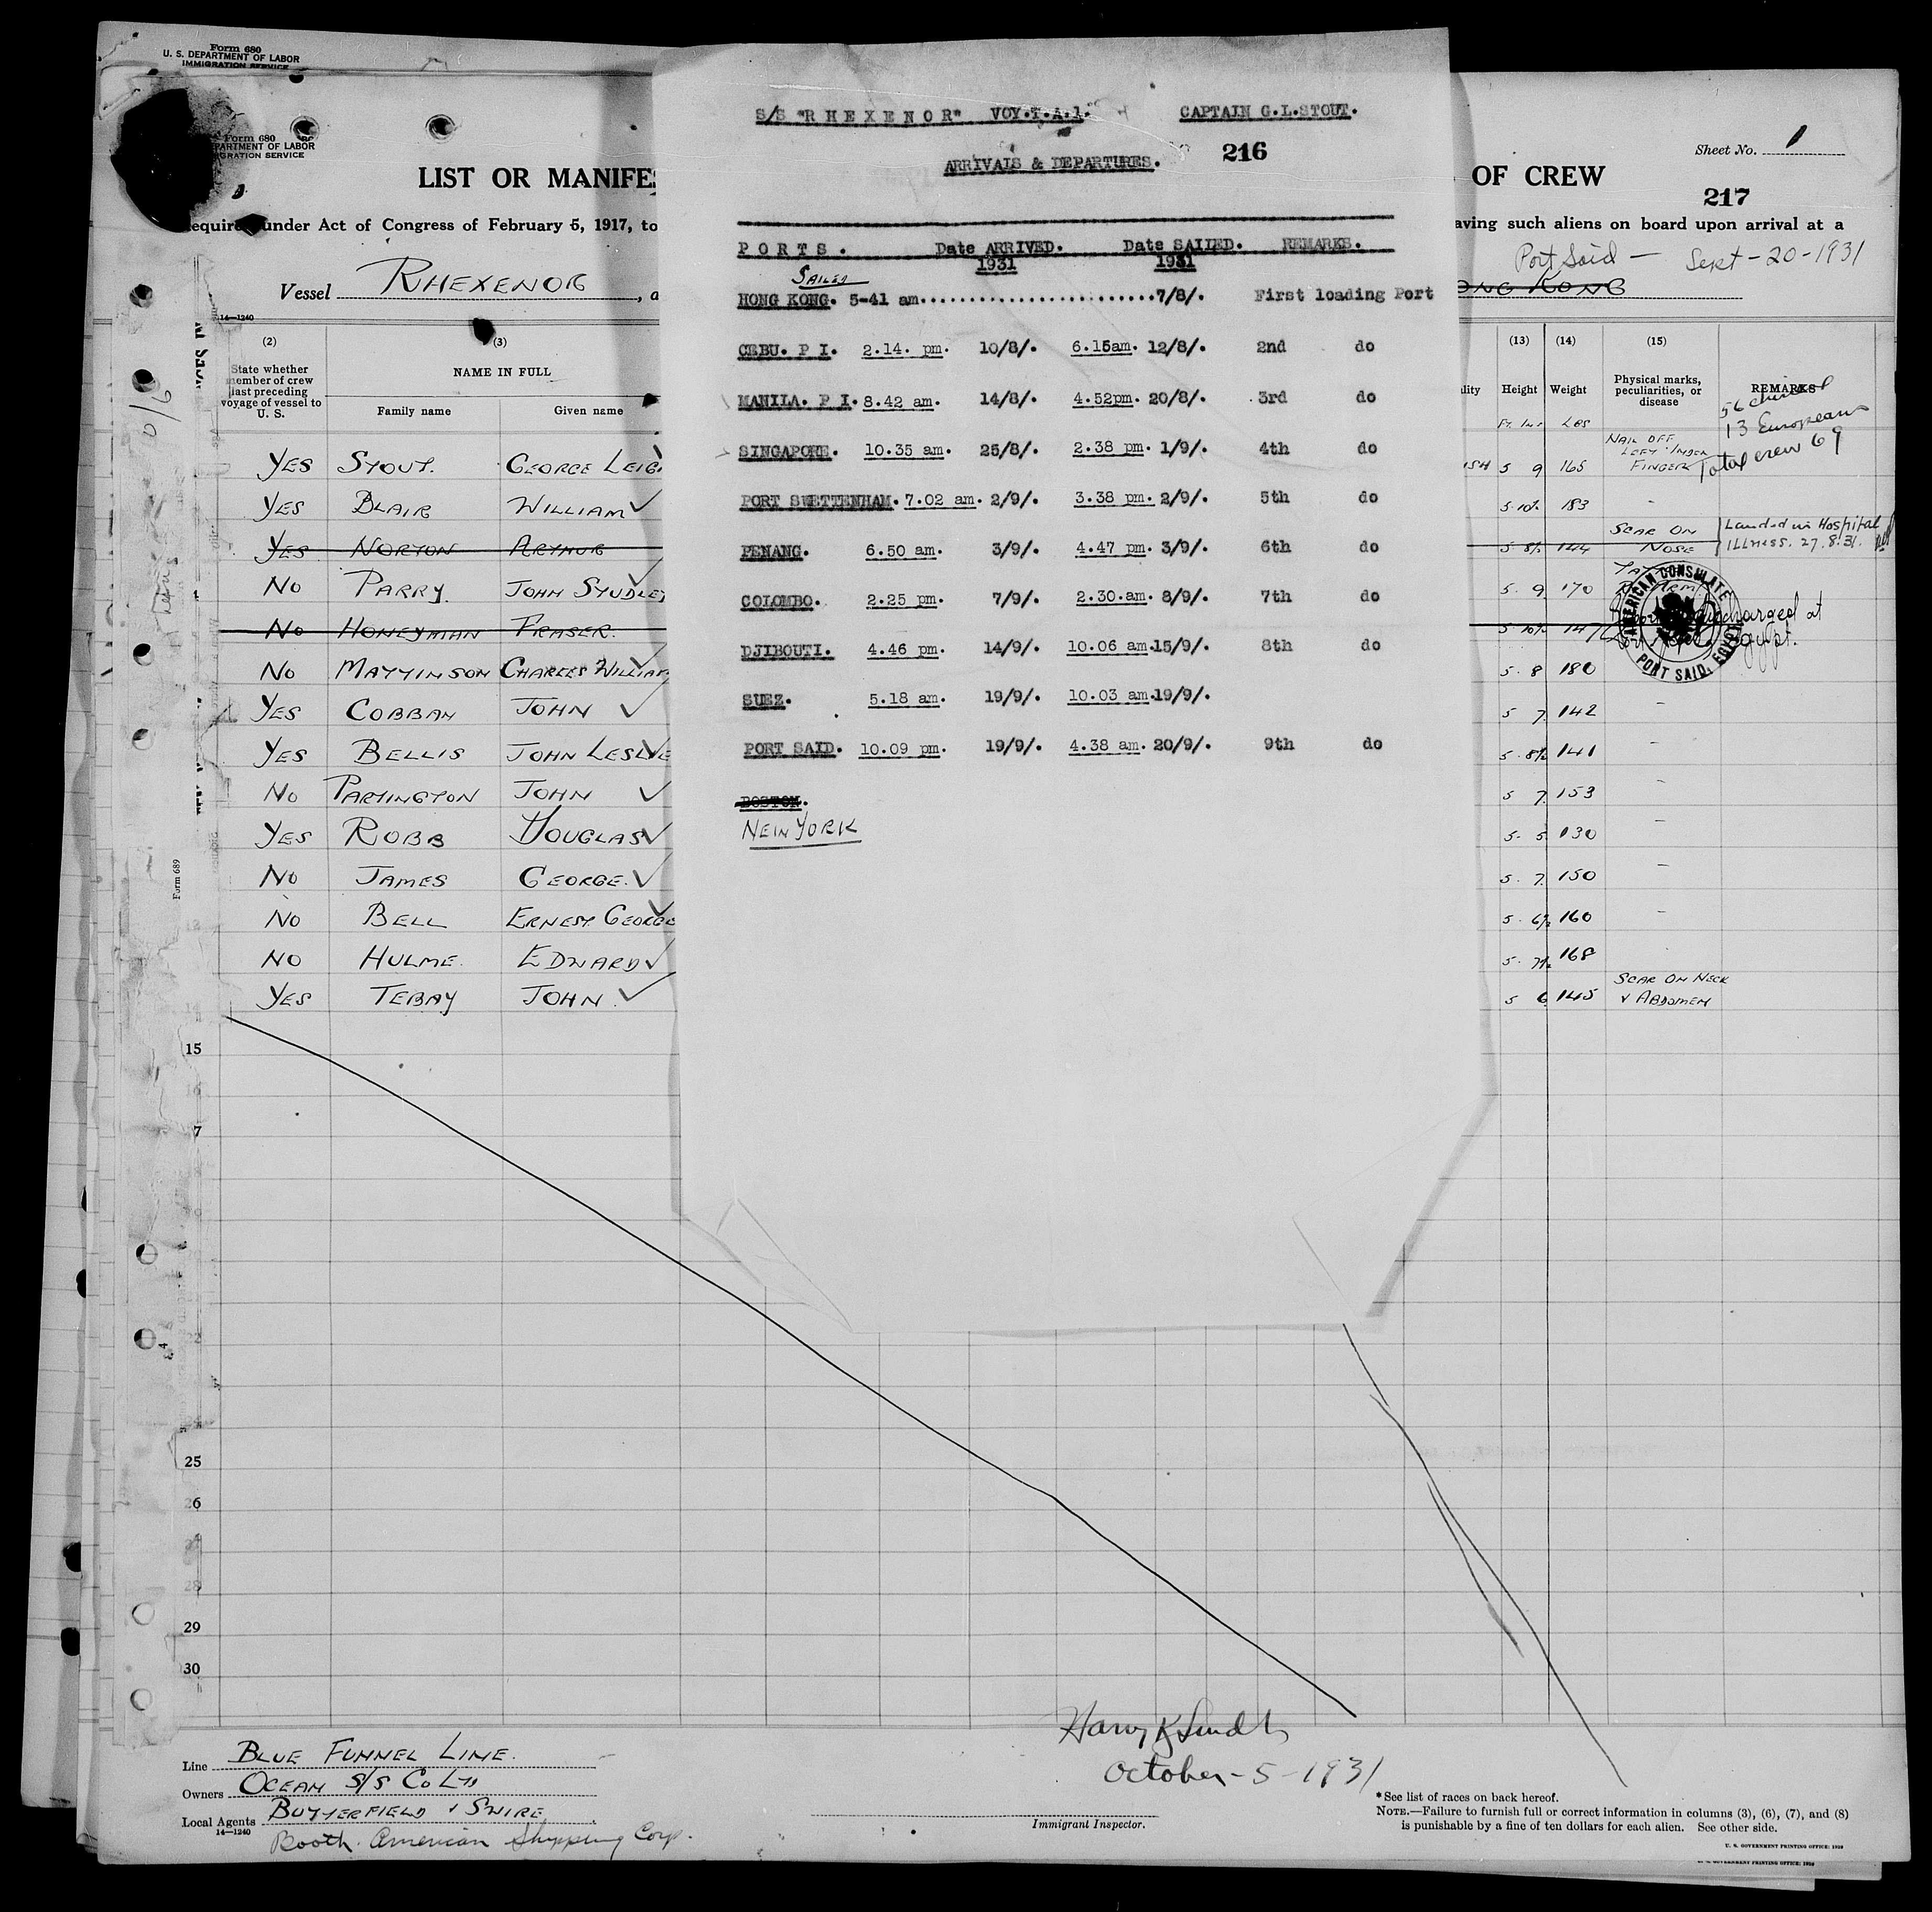 Form 680
U. S. DEPARTMENT OF LABOR
IMMIGRATION SERVICE
Form 680
PARTMENT OF LABOR
GRATION SERVICE
LIST OR MANIFES
equire under Act of Congress of February 5, 1917, to
Vessel RHEXENOR, a
14—1240
(2) (3)
State whether member of crew last preceding voyage of vessel to U. S.
NAME IN FULL
Family name Given name
YES STOUT. GEORGE LEIG
YES BLAIR WILLIAM ✓
YES NORTON ARTHUR
NO PARRY. JOHN STUDLEY
NO HONEYMAN FRASER.
NO MATTINSON CHARLES WILLIAM
YES COBBAN JOHN ✓
YES BELLIS JOHN LESLIE
NO PARTINGTON JOHN ✓
YES ROBB DOUGLAS ✓
NO JAMES GEORGE. ✓
NO BELL ERNEST GEORGE
NO HULME. EDWARD ✓
YES TEBAY JOHN. ✓
15
7
25
26
28
29
30
Form 689
S/S "R H E X E N O R" VOY.T.A.1. CAPTAIN G.L.STOUT.
216
ARRIVALS & DEPARTURES.
P O R T S . Date ARRIVED. Date SAILED. REMARKS.
1931 1931
SAILED
HONG KONG. 5-41 am........................7/8/. First loading Port
CEBU. P I. 2.14. pm. 10/8/. 6.15am. 12/8/. 2nd do
MANILA. P I. 8.42 am. 14/8/. 4.52pm. 20/8/. 3rd do
SINGAPORE. 10.35 am. 25/8/. 2.38 pm. 1/9/. 4th do
PORT SWETTENHAM. 7.02 am. 2/9/. 3.38 pm. 2/9/. 5th do
PENANG. 6.50 am. 3/9/. 4.47 pm. 3/9/. 6th do
COLOMBO. 2.25 pm. 7/9/. 2.30.am. 8/9/. 7th do
DJIBOUTI. 4.46 pm. 14/9/. 10.06 am. 15/9/. 8th do
SUEZ. 5.18 am. 19/9/. 10.03 am. 19/9/.
PORT SAID. 10.09 pm. 19/9/. 4.38 am. 20/9/. 9th do
BOSTON.
NEW YORK
Sheet No. 1
OF CREW
217
aving such aliens on board upon arrival at a
Port Said — Sept-20-1931
ONG KONG
(13) (14) (15)
lity Height Weight Physical marks, peculiarities, or disease REMARKS
Ft. Ins LBS
13 Europeans
Total crew 69
ISH 5 9 165 NAIL OFF LEFT INDEX FINGER
5. 10½ 183 -
5 8½ 144 SCAR ON NOSE Landed in Hospital
ILLNESS. 27.8.31.
5. 9 170
5. 10½ 147 discharged at
Egypt.
AMERICAN CONSULATE
PORT SAID, EGYPT
5. 8 180
5 7 142 -
5. 8½ 141 -
5 7. 153 -
5. 5 130 -
5. 7. 150 -
5. 6½ 160 -
5. 7½ 168
5 6 145 SCAR ON NECK & ABDOMEN
Line BLUE FUNNEL LINE.
Owners OCEAN S/S CO LTD
Local Agents BUTTERFIELD & SWIRE.
14—1240
Booth American Shipping Corp.
October-5-1931
Immigrant Inspector.
*See list of races on back hereof.
NOTE.—Failure to furnish full or correct information in columns (3), (6), (7), and (8)
is punishable by a fine of ten dollars for each alien. See other side.
U. S. GOVERNMENT PRINTING OFFICE: 1930